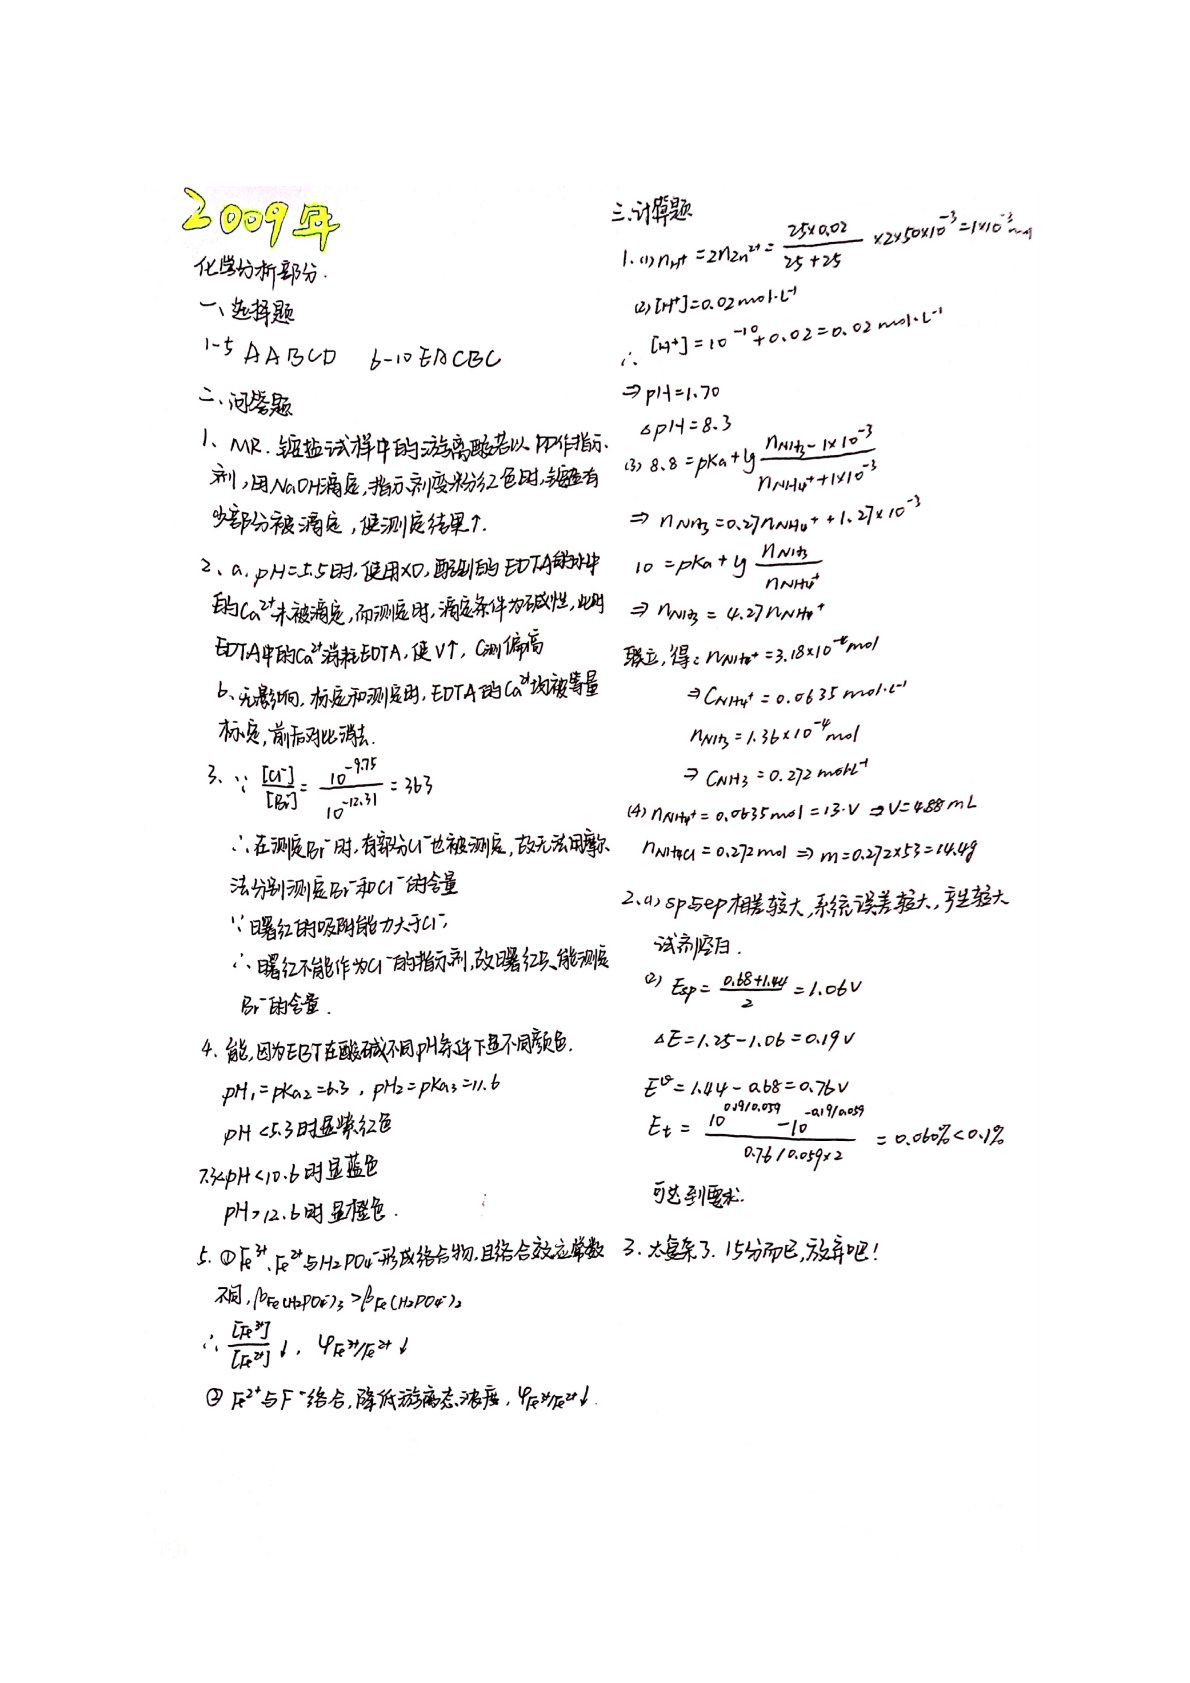 2009年
化学分析部分.
一、选择题
1-5 AABCD 6-10 EACBC
二、问答题
1、MR. 铵盐试样中的游离酸若以PP作指示
剂,因NaOH滴定,指示剂变粉红色时,铵盐有
少部分被滴定,使测定结果↑.
2、a. pH=5.5时,使用XO,配制的EDTA的水中
的Ca²⁺未被滴定,而测定时,滴定条件为碱性,此时
EDTA中的Ca²⁺消耗EDTA,使V↑,C测偏高
b、无影响,标定和测定时,EDTA的Ca²⁺均被等量
标定,前后对比消去.
3、∵ [Cl⁻]/[Br⁻] = 10^-9.75/10^-12.31 = 363
∴在测定Br⁻时,有部分Cl⁻也被测定,故无法用摩尔
法分别测定Br⁻和Cl⁻的含量
∵曙红的吸附能力大于Cl⁻,
∴曙红不能作为Cl⁻的指示剂,故曙红只能测定
Br⁻的含量.
4. 能,因为EBT在酸碱不同pH条件下显不同颜色.
pH₁=pKa2=6.3, pH2=pKa3=11.6
pH<5.3时显紫红色
7.3<pH<10.6时显蓝色
pH>12.6时显橙色.
5. ①Fe³⁺、Fe²⁺与H2PO4⁻形成络合物,且络合效应常数
不同,βFe(H2PO4⁻)3>βFe(H2PO4⁻)2
∴ [Fe³⁺]/[Fe²⁺]↓, φFe³⁺/Fe²⁺↓
②Fe²⁺与F⁻络合,降低游离态浓度,φFe³⁺/Fe²⁺↓.
三、计算题
1.(1) nH⁺=2nZn²⁺= 25×0.02/25+25 ×2×50×10⁻³=1×10⁻³mol
(2) [H⁺]=0.02mol·L⁻¹
∴ [H⁺]=10⁻¹⁰+0.02=0.02mol·L⁻¹
⇒pH=1.70
△pH=8.3
(3) 8.8=pKa+lg nNH3-1×10⁻³/nNH4⁺+1×10⁻³
⇒ nNH3=0.27nNH4⁺+1.27×10⁻³
10=pKa+lg nNH3/nNH4⁺
⇒ nNH3=4.27nNH4⁺
联立,得:nNH4⁺=3.18×10⁻⁴mol
⇒CNH4⁺=0.0635mol·L⁻¹
nNH3=1.36×10⁻⁴mol
⇒ CNH3=0.272mol·L⁻¹
(4) nNH4⁺=0.0635mol=13·V ⇒V=4.88mL
nNH4Cl=0.272mol ⇒m=0.272×53=14.4g
2.(1) sp与ep相差较大,系统误差较大,产生较大
试剂空白.
(2) Esp= 0.68+1.44/2 =1.06V
△E=1.25-1.06=0.19V
E^θ=1.44-0.68=0.76V
Et= 10^0.19/0.059-10^-0.19/0.059/0.76/0.059×2 =0.060%<0.1%
可达到要求.
3. 太复杂了.15分而已,放弃吧!